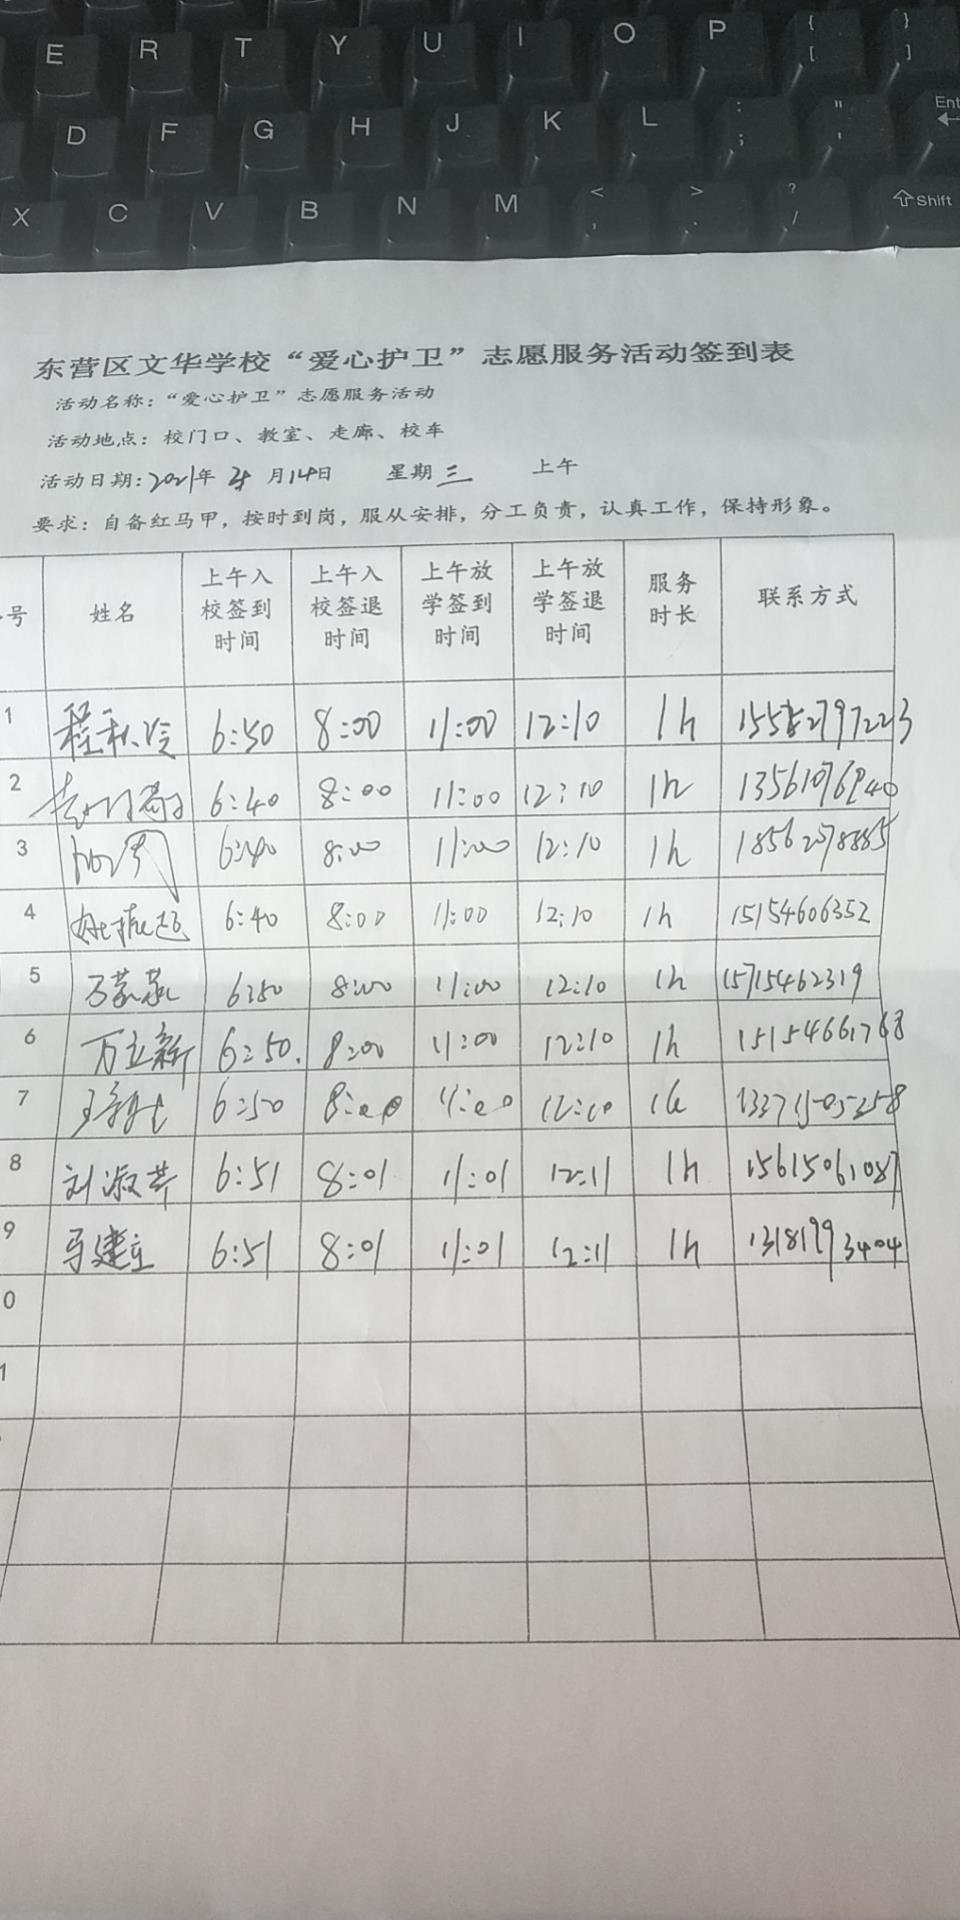 E R T Y U I O P { [ } ]
D F G H J K L : ; " ' Ent
X C V B N M < , > . ? / Shift
东营区文华学校“爱心护卫”志愿服务活动签到表
活动名称：“爱心护卫”志愿服务活动
活动地点：校门口、教室、走廊、校车
活动日期：2021年 4 月14日 星期三 上午
要求：自备红马甲，按时到岗，服从安排，分工负责，认真工作，保持形象。
号 姓名 上午入校签到时间 上午入校签退时间 上午放学签到时间 上午放学签退时间 服务时长 联系方式
1 程秋冷 6:50 8:00 11:00 12:10 1h
2 6:40 8:00 11:00 12:10 1h
3 6:40 8:00 11:00 12:10 1h
4 6:40 8:00 11:00 12:10 1h 15154606352
5 6:50 8:00 11:00 12:10 1h 15715462319
6 万立新 6:50. 8:00 11:00 12:10 1h 15154661768
7 6:50 8:00 11:00 12:10 1h
8 刘淑芹 6:51 8:01 11:01 12:11 1h 15615061087
9 马建立 6:51 8:01 11:01 12:11 1h 13181993404
0
1